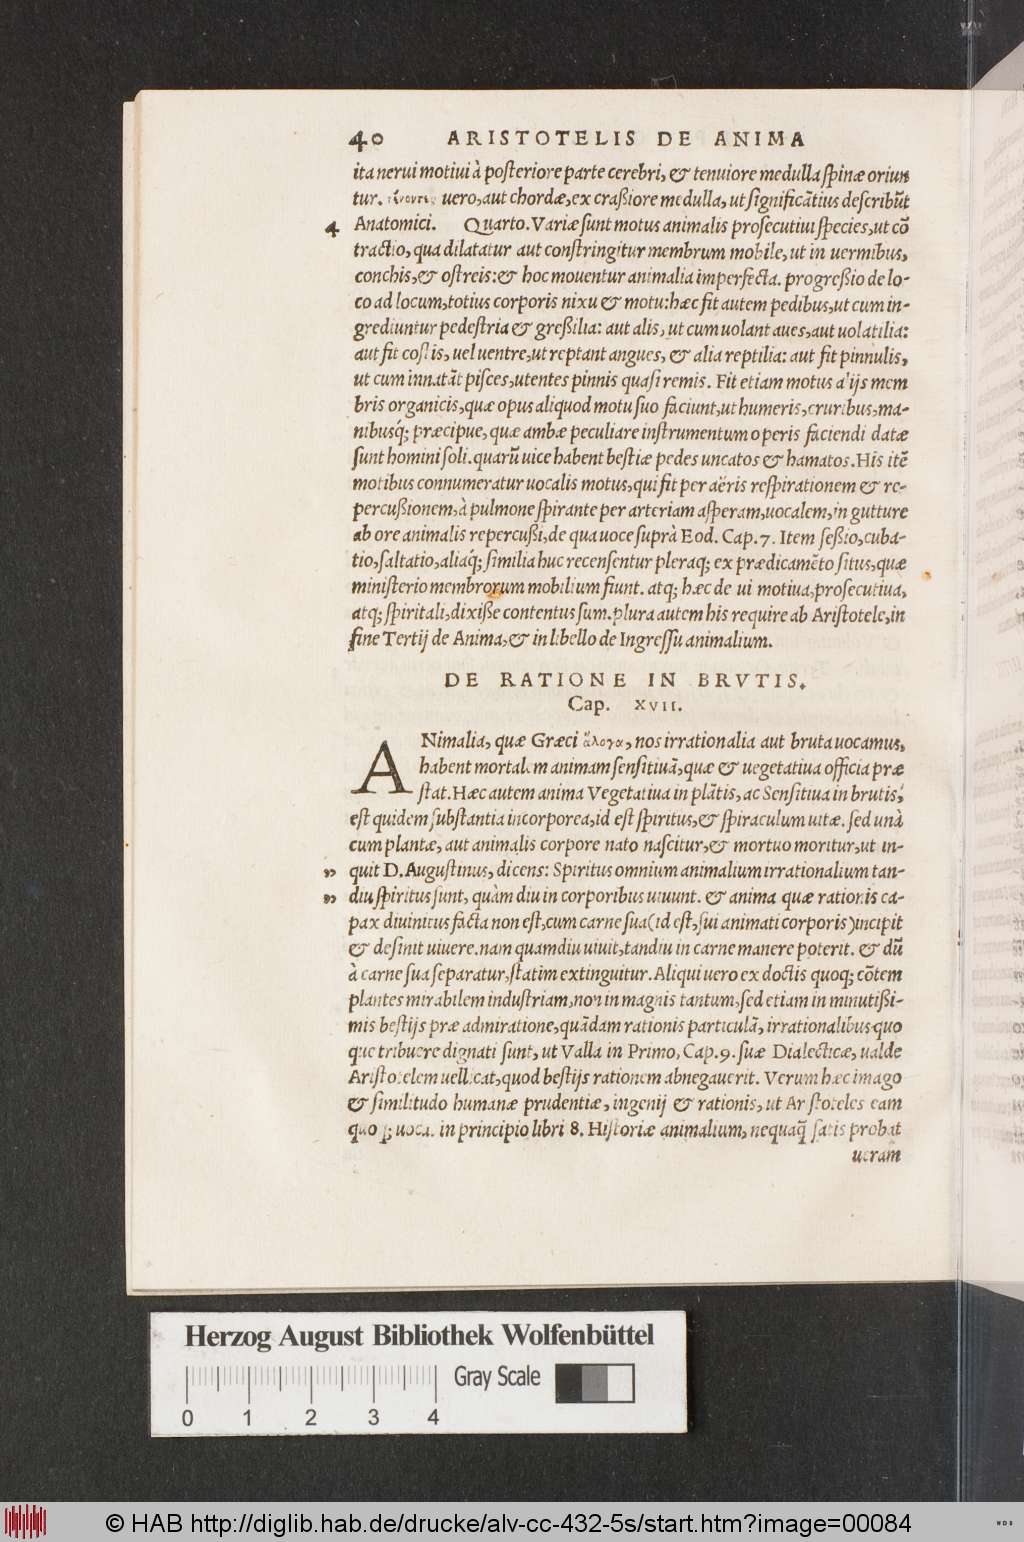 40 ARISTOTELIS DE ANIMA
ita nerui motiui à posteriore parte cerebri, & tenuiore medulla spinæ oriun
tur. uero, aut chordæ, ex craßiore medulla, ut significãtius describũt
4 Anatomici. Quarto. Variæ sunt motus animalis prosecutiui species, ut cõ
tractio, qua dilatatur aut constringitur membrum mobile, ut in uermibus,
conchis, & ostreis: & hoc mouentur animalia imperfecta. progreßio de lo-
co ad locum, totius corporis nixu & motu: hæc fit autem pedibus, ut cum in-
grediuntur pedestria & greßilia: aut alis, ut cum uolant aues, aut uolatilia:
aut fit costis, uel uentre, ut reptant angues, & alia reptilia: aut fit pinnulis,
ut cum innatãt pisces, utentes pinnis quasi remis. Fit etiam motus alijs mem
bris organicis, quæ opus aliquod motu suo faciunt, ut humeris, cruribus, ma-
nibusq́; præcipue, quæ ambæ peculiare instrumentum operis faciendi datæ
sunt homini soli. quarũ uice habent bestiæ pedes uncatos & hamatos. His itẽ
motibus connumeratur uocalis motus, qui fit per aëris respirationem & re-
percußionem, à pulmone spirante per arteriam asperam, uocalem, in gutture
ab ore animalis repercußi, de qua uoce suprà Eod. Cap. 7. Item seßio, cuba-
tio, saltatio, aliaq́; similia huc recensentur pleraq; ex prædicamẽto situs, quæ
ministerio membrorum mobilium fiunt. atq; hæc de ui motiua, prosecutiua,
atq; spiritali, dixiße contentus sum. plura autem his require ab Aristotele, in
fine Tertij de Anima, & in libello de Ingressu animalium.
DE RATIONE IN BRVTIS.
Cap. XVII.
ANimalia, quæ Græci ἄλογα, nos irrationalia aut bruta uocamus,
habent mortalem animam sensitiuã, quæ & uegetatiua officia præ
stat. Hæc autem anima Vegetatiua in plãtis, ac Sensitiua in brutis,
est quidem substantia incorporea, id est spiritus, & spiraculum uitæ. sed unà
cum plantæ, aut animalis corpore nato nascitur, & mortuo moritur, ut in-
„ quit D. Augustinus, dicens: Spiritus omnium animalium irrationalium tan-
„ diu spiritus sunt, quàm diu in corporibus uiuunt. & anima quæ rationis ca-
pax diuinitus facta non est, cum carne sua (id est, sui animati corporis) incipit
& desinit uiuere. nam quamdiu uiuit, tandiu in carne manere poterit. & dũ
à carne sua separatur, statim extinguitur. Aliqui uero ex doctis quoq; cõtem
plantes mirabilem industriam, non in magnis tantum, sed etiam in minutißi-
mis bestijs præ admiratione, quãdam rationis particulã, irrationalibus quo
que tribuere dignati sunt, ut Valla in Primo, Cap. 9. suæ Dialecticæ, ualde
Aristotelem uellicat, quod bestijs rationem abnegauerit. Verum hæc imago
& similitudo humanæ prudentiæ, ingenij & rationis, ut Aristoteles eam
quoq; uocat in principio libri 8. Historiæ animalium, nequaq̃ satis probat
ueram
Herzog August Bibliothek Wolfenbüttel
Gray Scale
0 1 2 3 4
© HAB http://diglib.hab.de/drucke/alv-cc-432-5s/start.htm?image=00084